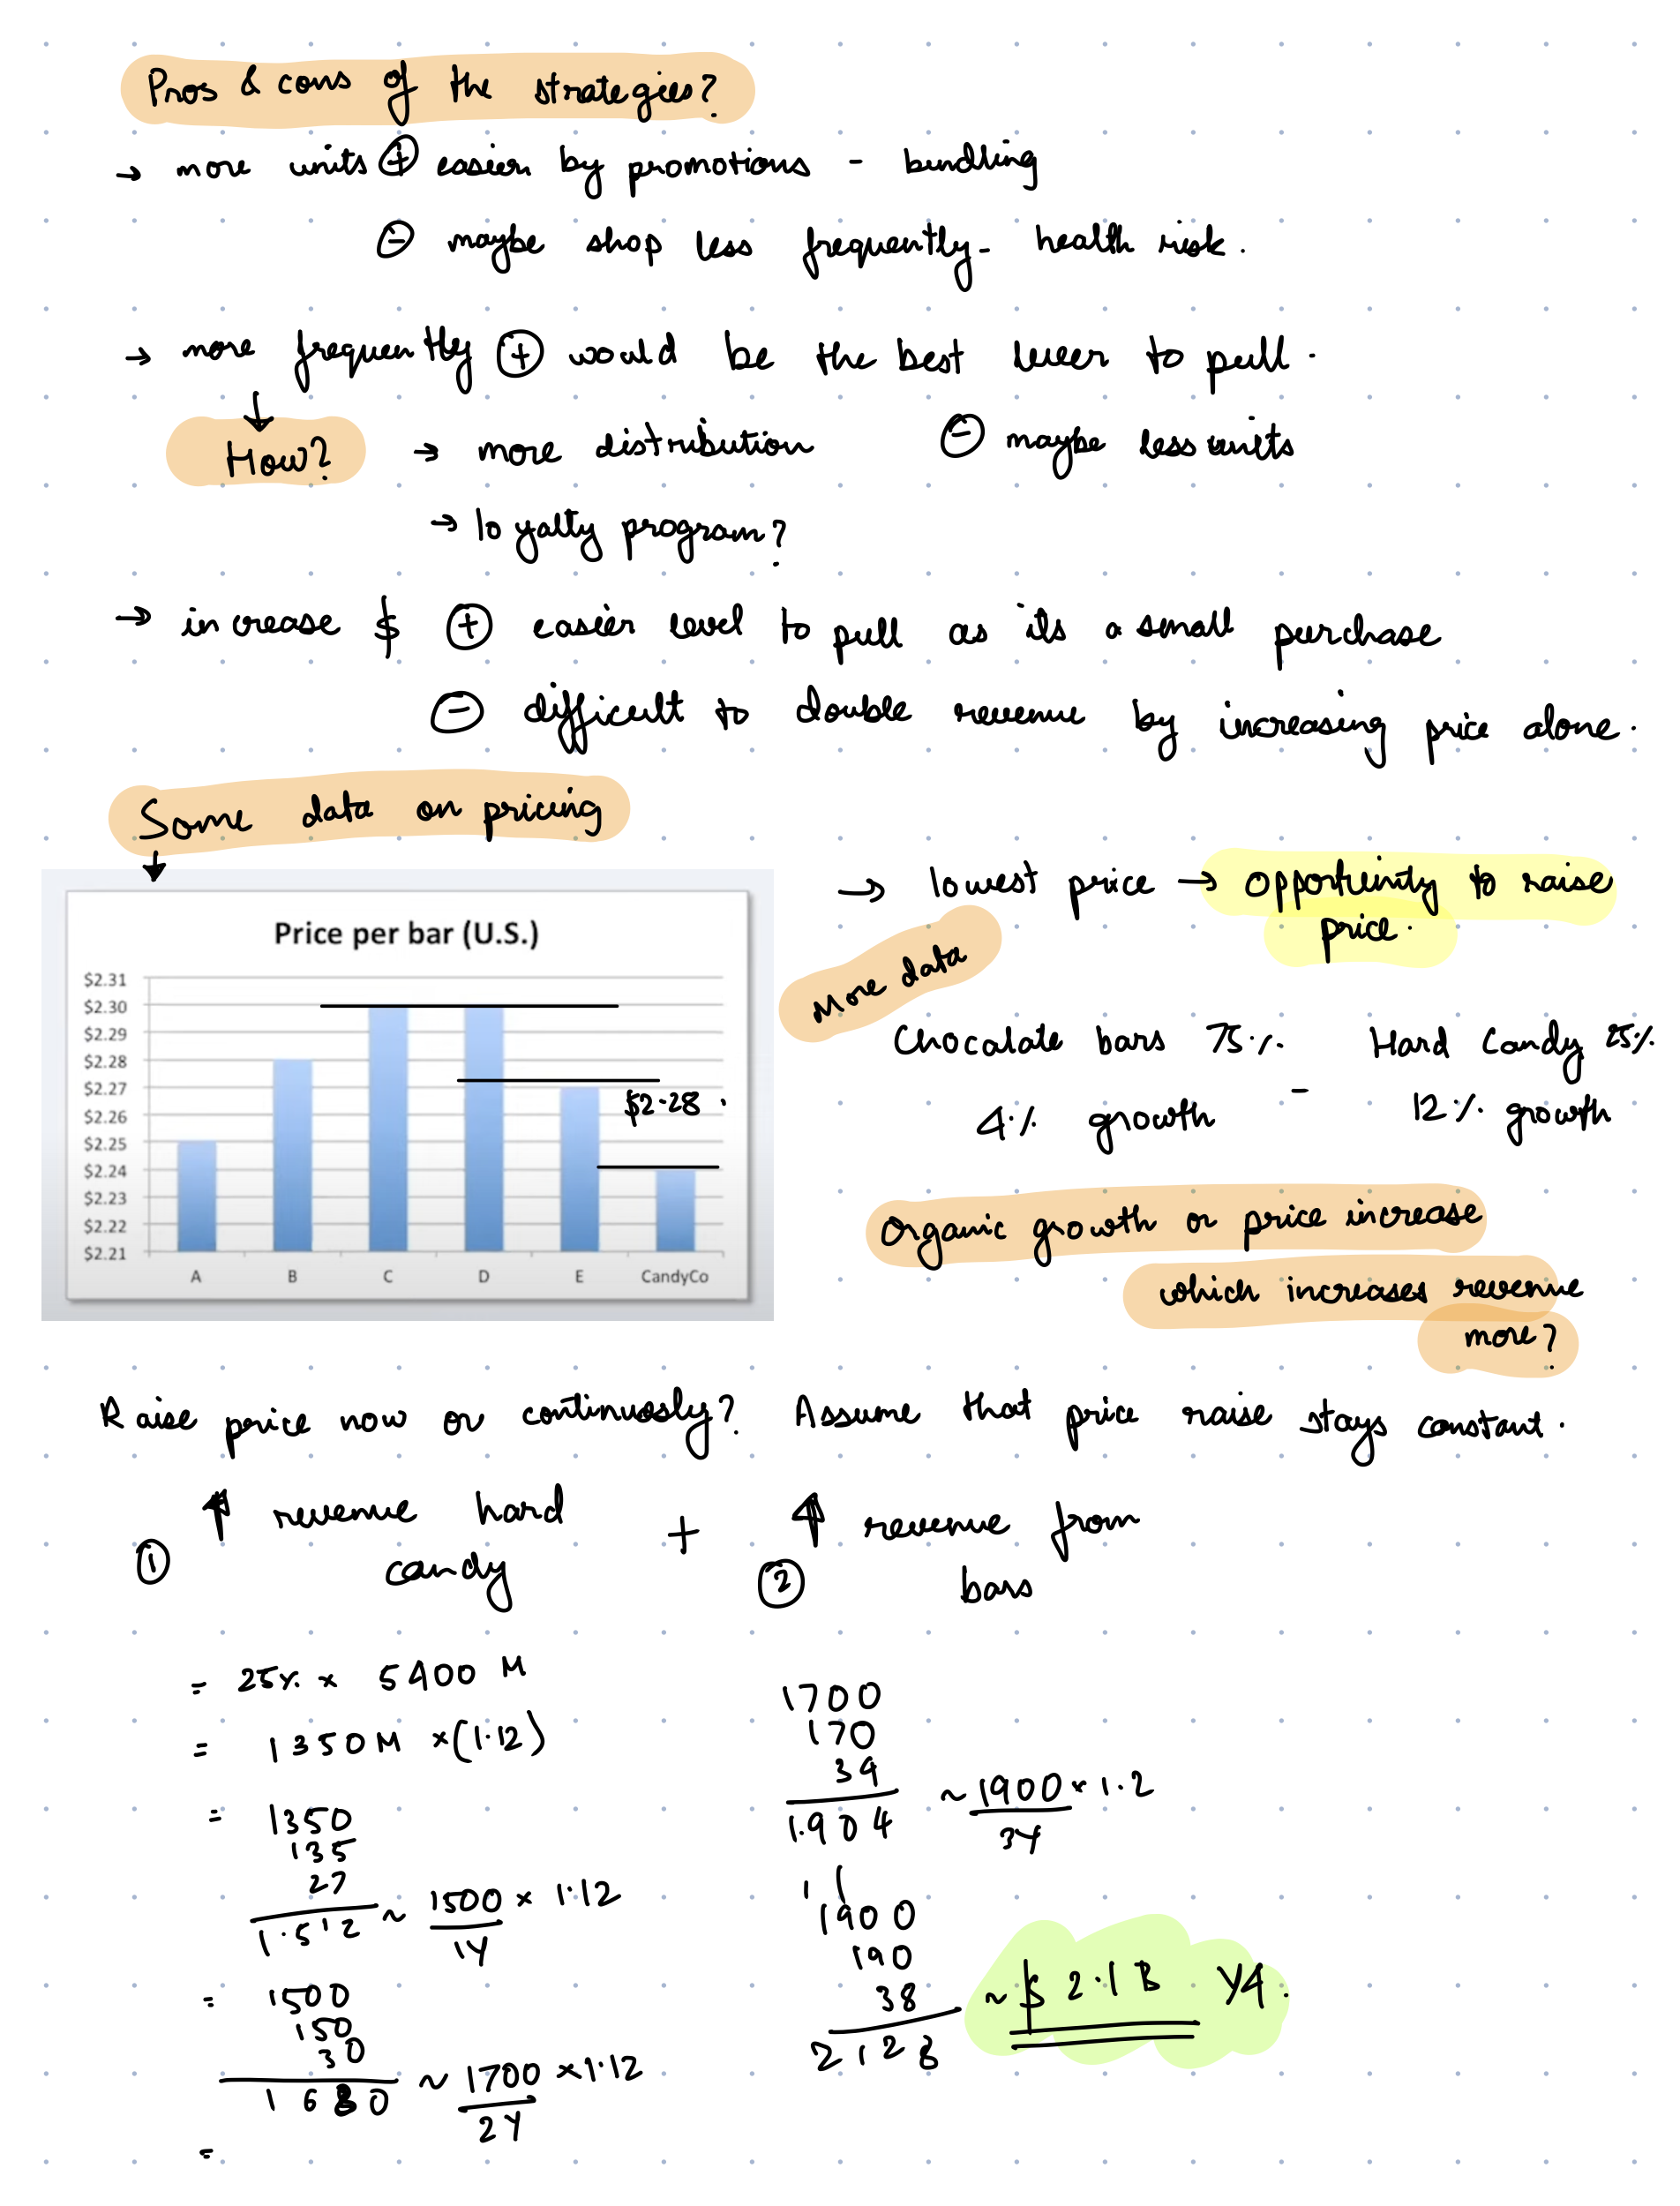 Pros & cons of the strategies?
→ more units ⊕ easier by promotions - bundling
⊖ maybe shop less frequently - health risk.
→ more frequently ⊕ would be the best lever to pull.
↓
How? → more distribution ⊖ maybe less units
→ loyalty program?
→ increase $ ⊕ easier level to pull as its a small purchase
⊖ difficult to double revenue by increasing price alone.
Some data on pricing
↓
Price per bar (U.S.)
$2.31
$2.30
$2.29
$2.28
$2.27
$2.26
$2.25
$2.24
$2.23
$2.22
$2.21
A B C D E CandyCo
$2.28.
→ lowest price → opportunity to raise
price.
More data
Chocalate bars 75% Hard Candy 25%
4% growth - 12% growth
Organic growth or price increase
which increases revenue
more?
Raise price now or continuosly? Assume that price raise stays constant.
① ↑ revenue hard
candy
+
② ↑ revenue from
bars
= 25% × 5400 M
= 1350M ×(1.12)
= 1350
135
27
1.512 ~ 1500 × 1.12
1Y
= 1500
150
30
1680 ~ 1700 ×1.12
2Y
=
1700
170
34
1.904 ~ 1900 × 1.2
3Y
11
1900
190
38
2128 ~ $ 2.1 B Y4.